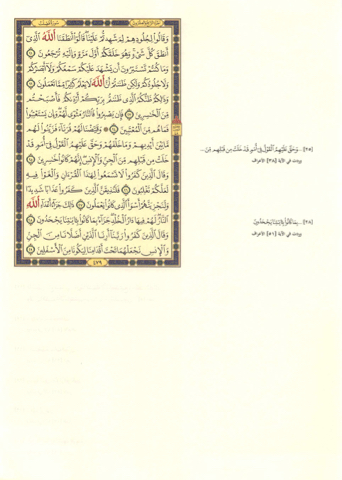 وَقَالُوا لِجُلُودِهِمْ لِمَ شَهِدتُّمْ عَلَيْنَا قَالُوا أَنطَقَنَا اللَّهُ الَّذِي
أَنطَقَ كُلَّ شَيْءٍ وَهُوَ خَلَقَكُمْ أَوَّلَ مَرَّةٍ وَإِلَيْهِ تُرْجَعُونَ
وَمَا كُنتُمْ تَسْتَتِرُونَ أَن يَشْهَدَ عَلَيْكُمْ سَمْعُكُمْ وَلَا أَبْصَارُكُمْ
وَلَا جُلُودُكُمْ وَلَٰكِن ظَنَنتُمْ أَنَّ اللَّهَ لَا يَعْلَمُ كَثِيرًا مِّمَّا تَعْمَلُونَ
وَذَٰلِكُمْ ظَنُّكُمُ الَّذِي ظَنَنتُم بِرَبِّكُمْ أَرْدَاكُمْ فَأَصْبَحْتُم
مِّنَ الْخَاسِرِينَ فَإِن يَصْبِرُوا فَالنَّارُ مَثْوًى لَّهُمْ وَإِن يَسْتَعْتِبُوا
فَمَا هُم مِّنَ الْمُعْتَبِينَ وَقَيَّضْنَا لَهُمْ قُرَنَاءَ فَزَيَّنُوا لَهُم
مَّا بَيْنَ أَيْدِيهِمْ وَمَا خَلْفَهُمْ وَحَقَّ عَلَيْهِمُ الْقَوْلُ فِي أُمَمٍ قَدْ
خَلَتْ مِن قَبْلِهِم مِّنَ الْجِنِّ وَالْإِنسِ إِنَّهُمْ كَانُوا خَاسِرِينَ
وَقَالَ الَّذِينَ كَفَرُوا لَا تَسْمَعُوا لِهَٰذَا الْقُرْآنِ وَالْغَوْا فِيهِ
لَعَلَّكُمْ تَغْلِبُونَ فَلَنُذِيقَنَّ الَّذِينَ كَفَرُوا عَذَابًا شَدِيدًا
وَلَنَجْزِيَنَّهُمْ أَسْوَأَ الَّذِي كَانُوا يَعْمَلُونَ ذَٰلِكَ جَزَاءُ أَعْدَاءِ اللَّهِ
النَّارُ لَهُمْ فِيهَا دَارُ الْخُلْدِ جَزَاءً بِمَا كَانُوا بِآيَاتِنَا يَجْحَدُونَ
وَقَالَ الَّذِينَ كَفَرُوا رَبَّنَا أَرِنَا الَّذَيْنِ أَضَلَّانَا مِنَ الْجِنِّ
وَالْإِنسِ نَجْعَلْهُمَا تَحْتَ أَقْدَامِنَا لِيَكُونَا مِنَ الْأَسْفَلِينَ
٤٧٩
[٢٥] ...وَحَقَّ عَلَيْهِمُ الْقَوْلُ فِي أُمَمٍ قَدْ خَلَتْ مِن قَبْلِهِم مِّنَ ...
وردت في الآية [٣٨] الأعراف
[٢٨] ...بِمَا كَانُوا بِآيَاتِنَا يَجْحَدُونَ
وردت في الآية [٥١] الأعراف